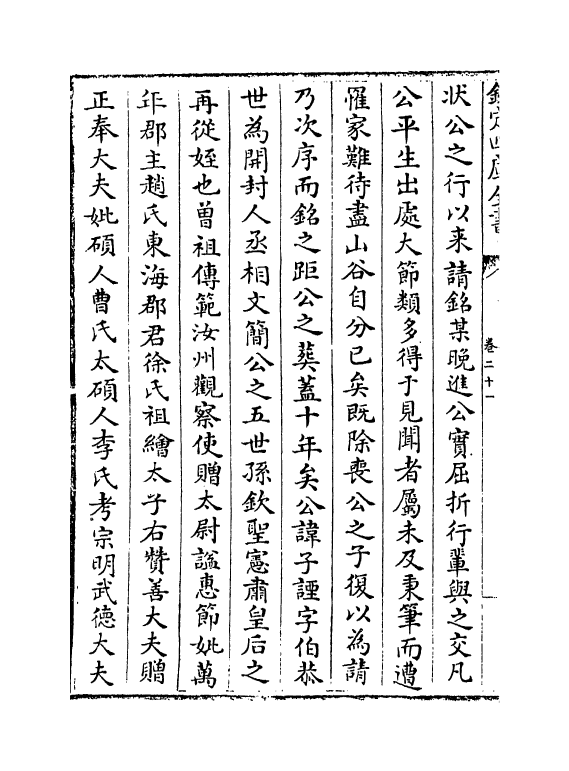 欽定四庫全書
卷二十一
狀公之行以来請銘某晚進公實屈折行輩與之交凡
公平生出處大節類多得于見聞者屬未及秉筆而遭
罹家難待盡山谷自分已矣既除喪公之子復以為請
乃次序而銘之距公之葬蓋十年矣公諱子諲字伯恭
世為開封人丞相文簡公之五世孫欽聖憲肅皇后之
再從姪也曽祖傳範汝州觀察使贈太尉謚惠節妣萬
年郡主趙氏東海郡君徐氏祖繪太子右贊善大夫贈
正奉大夫妣碩人曹氏太碩人李氏考宗明武德大夫